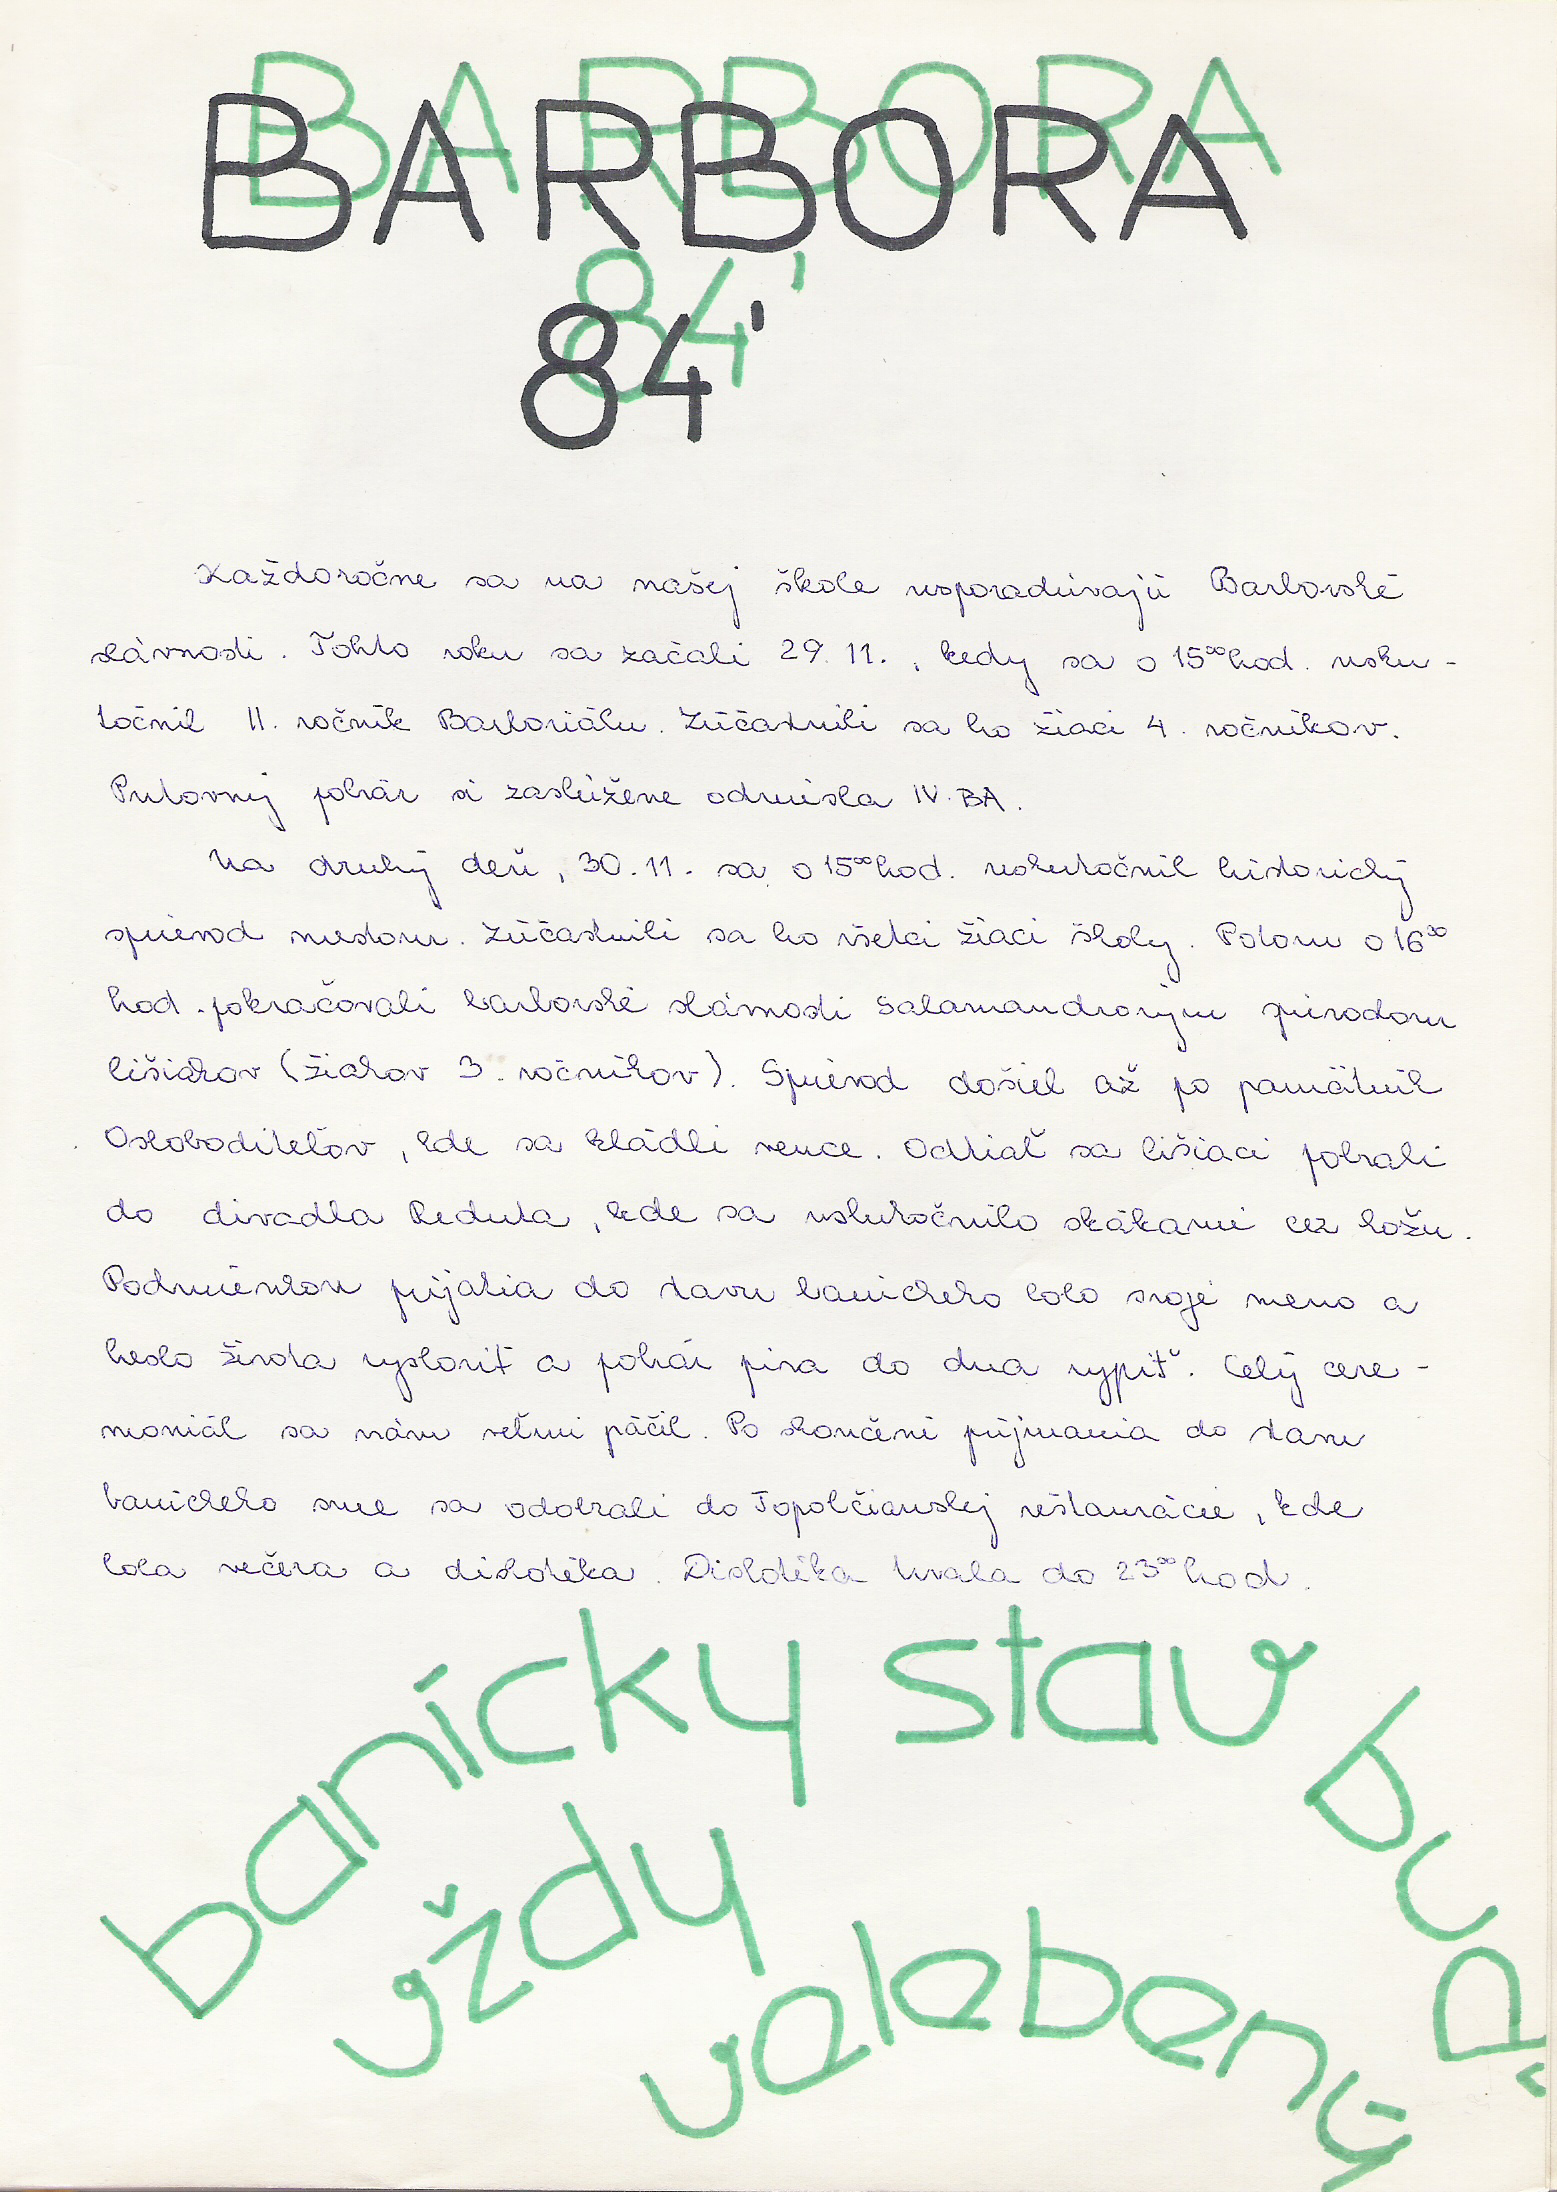 BARBORA
84'
Každoročne sa na našej škole usporadúvajú Barborské
slávnosti. Tohto roku sa začali 29. 11., kedy sa o 15⁰⁰ hod. usku-
točnil II. ročník Barboriálu. Zúčastnili sa ho žiaci 4. ročníkov.
Putovný pohár si zaslúžene odniesla IV. BA.
Na druhý deň, 30. 11. sa o 15⁰⁰ hod. uskutočnil historický
sprievod mestom. Zúčastnili sa ho všetci žiaci školy. Potom o 16³⁰
hod. pokračovali barborské slávnosti Salamandrovým sprievodom
lišiakov (žiakov 3. ročníkov). Sprievod došiel až po pamätník
Osloboditeľov, kde sa kládli vence. Odtiaľ sa lišiaci pobrali
do divadla Reduta, kde sa uskutočnilo skákanie cez kožu.
Podmienkou prijatia do stavu baníckeho bolo svoje meno a
heslo života vysloviť a pohár piva do dna vypiť. Celý cere-
moniál sa nám veľmi páčil. Po skončení prijímania do stavu
baníckeho sme sa odobrali do Topoľčianskej reštaurácie, kde
bola večera a diskotéka. Diskotéka trvala do 23⁰⁰ hod.
banícky stav buď
vždy
velebený